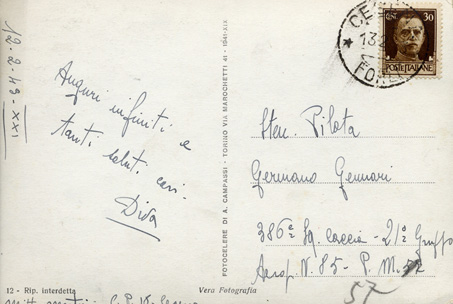 12-2-43-XXI
Auguri infiniti e
tanti salut. cari-
Diva
FOTOCELERE DI A. CAMPASSI - TORINO VIA MAROCHETTI 41 - 1941-XIX
30
POSTE ITALIANE
13
Sten. Pilota
Germano Gennari
386ª Sq. caccia - 21º Gruppo
Aerop. N. 85 - P. M. 52
57
12 - Rip. interdetta
Vera Fotografia